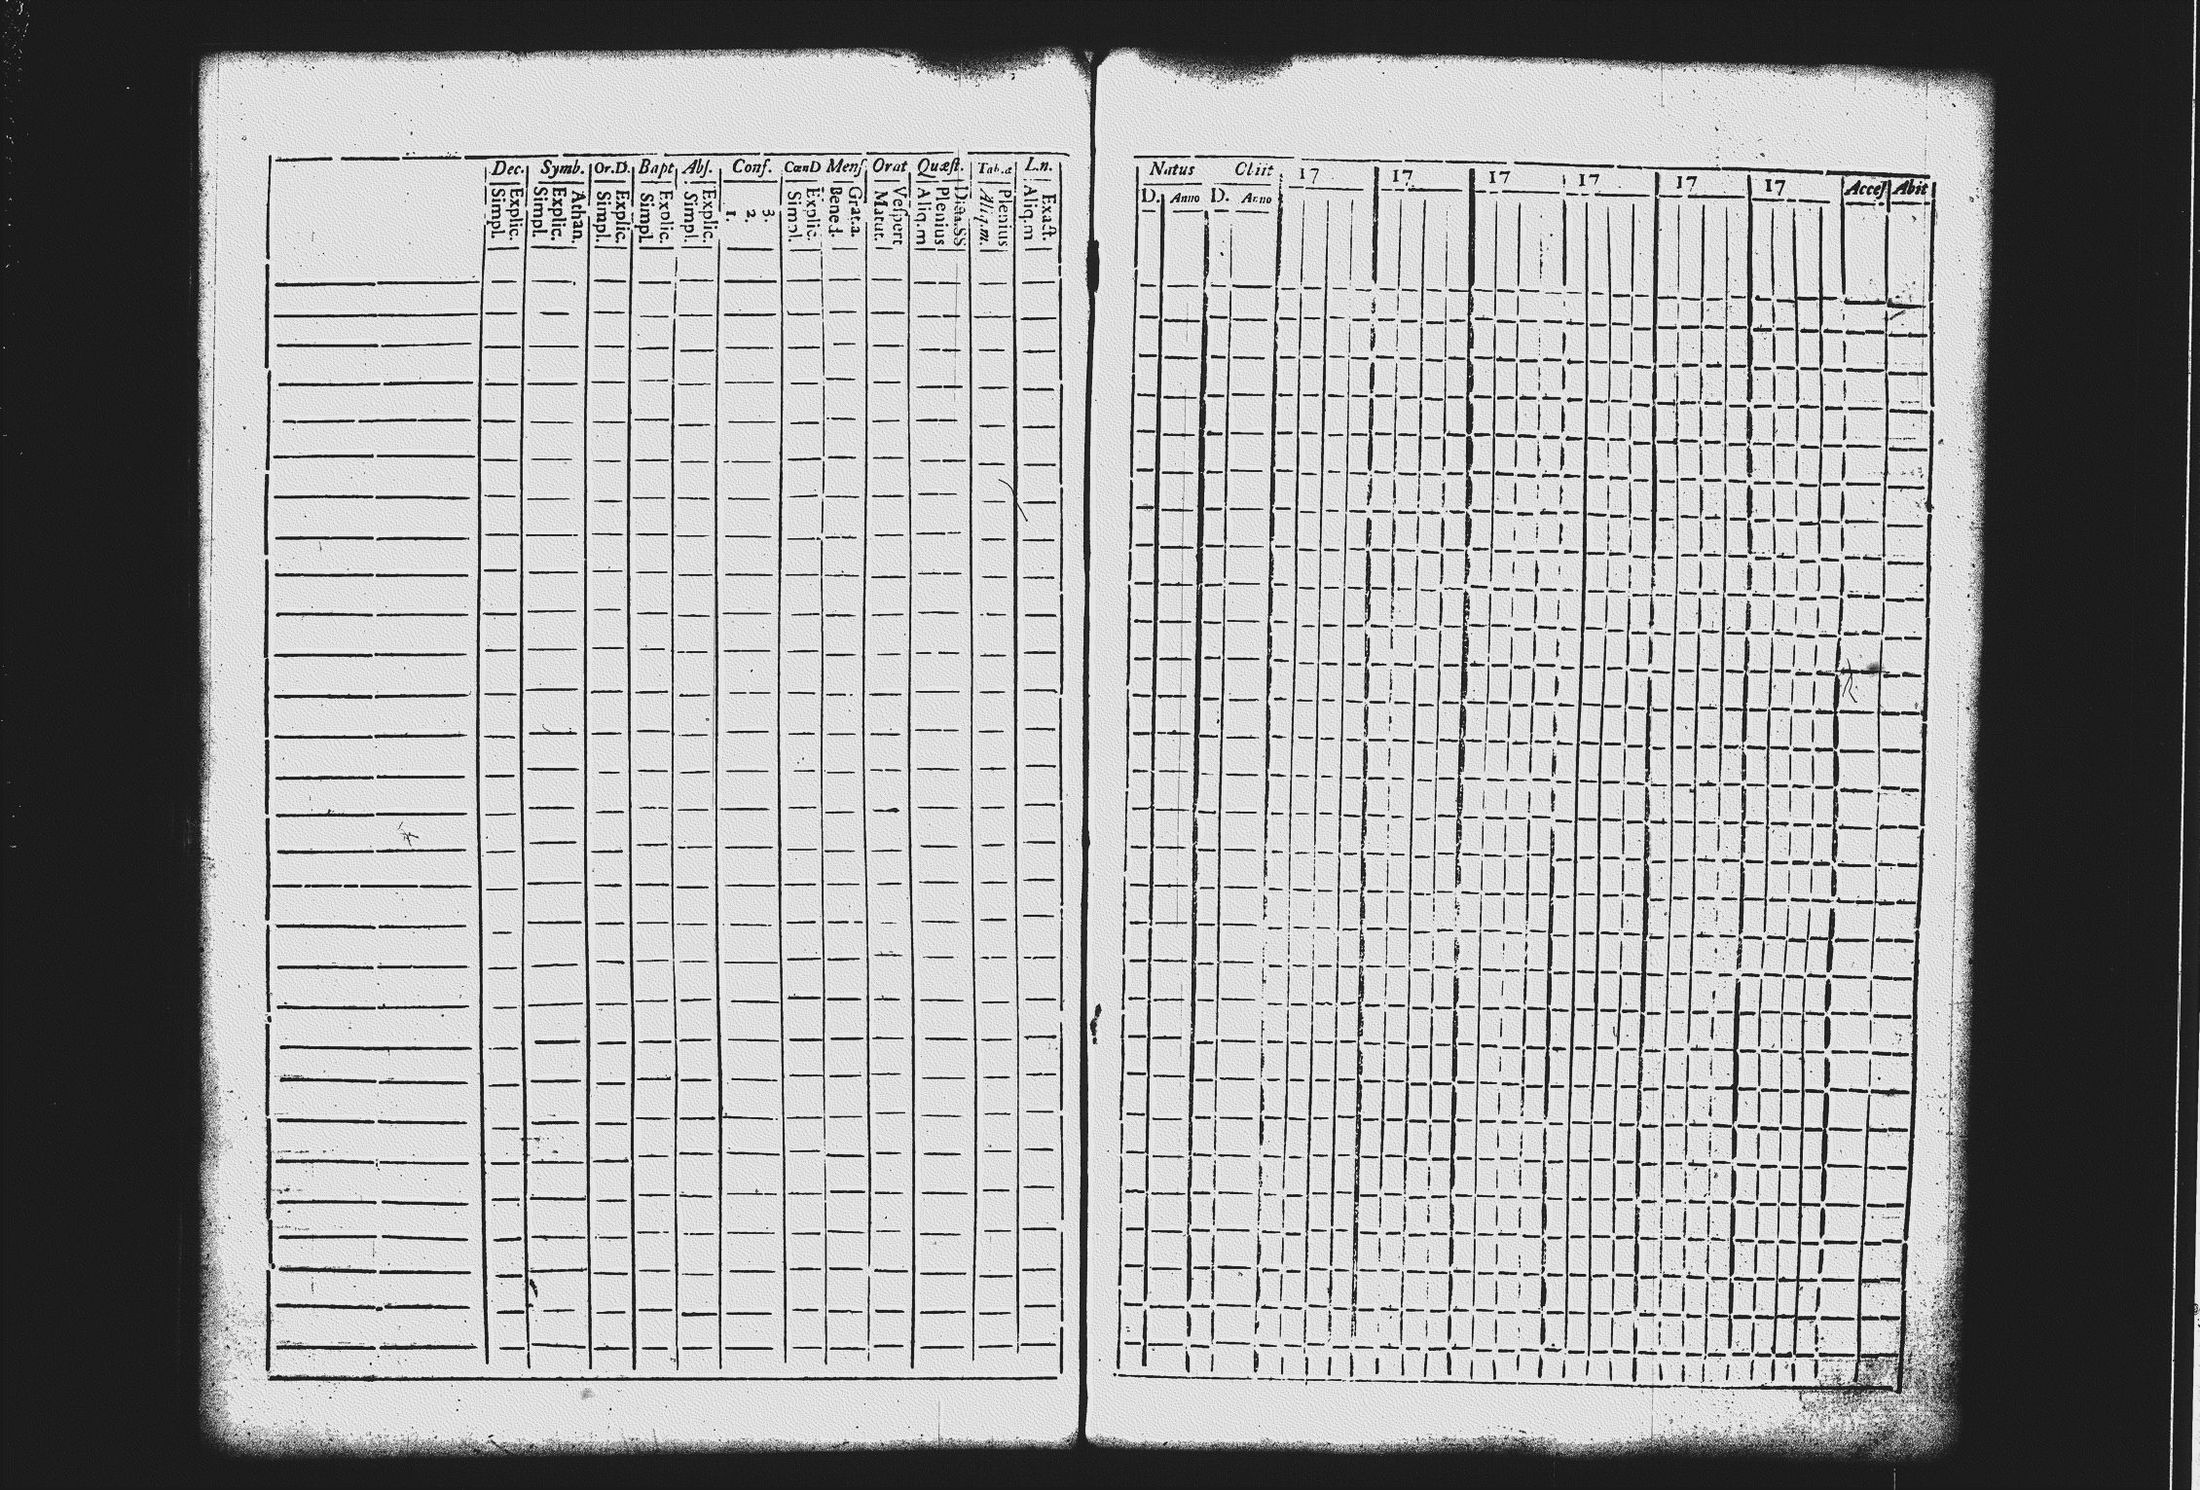 Dec. Symb. Or.D. Bapt Abſ. Conf. CœnD Menſ Orat Quæſt. Tab.æ L.n.
Simpl. Explic. Simpl. Explic. Athan. Simpl. Explic. Simpl. Explic. Simpl. Explic. 1. 2. 3. Simpl. Explic. Bened. Grat.a. Matut. Veſpert Aliq.m Plenius Dicta.SS Aliq.m. Plenius Aliq.m Exact.
Natus Cliit 17 17 17 17 17 17 Acceſ Abit
D. Anno D. Anno